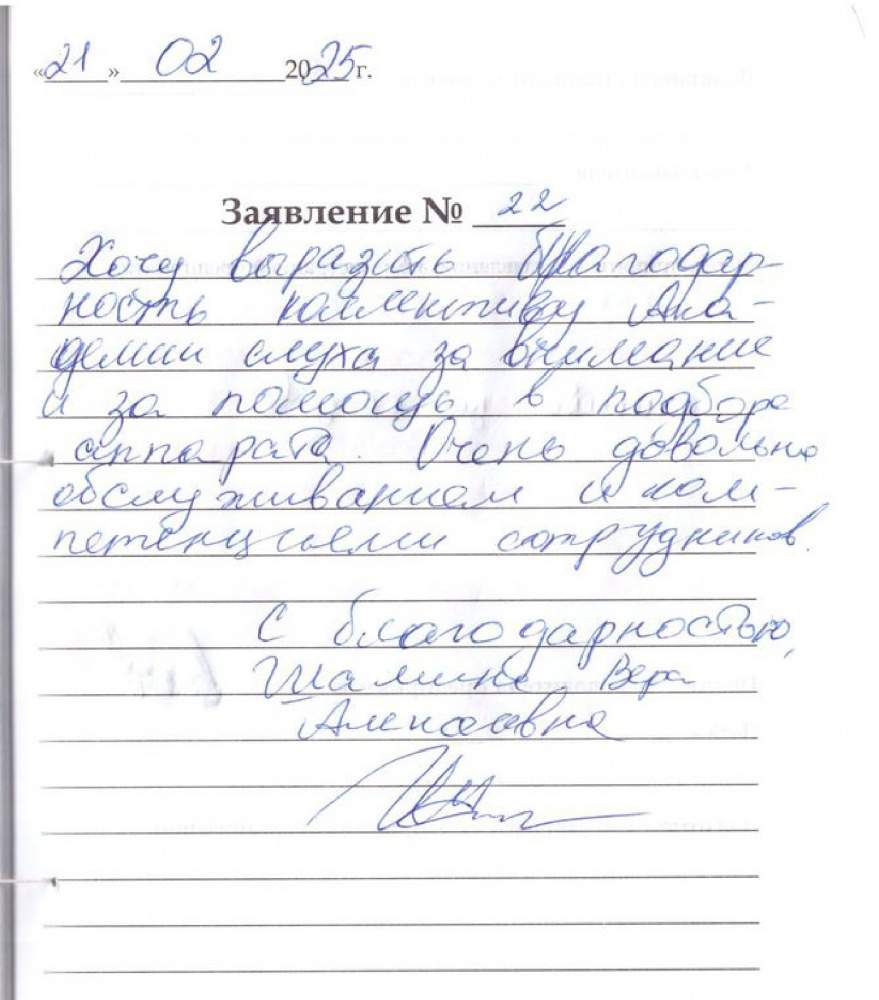 «21» 02 2025 г.
Заявление № 22
Хочу выразить благодар-
ность коллективу Ака-
демии слуха за внимание
и за помощь в подборе
аппарата. Очень довольна
обслуживанием и ком-
петенциями сотрудников.
С благодарностью,
Шалина Вера